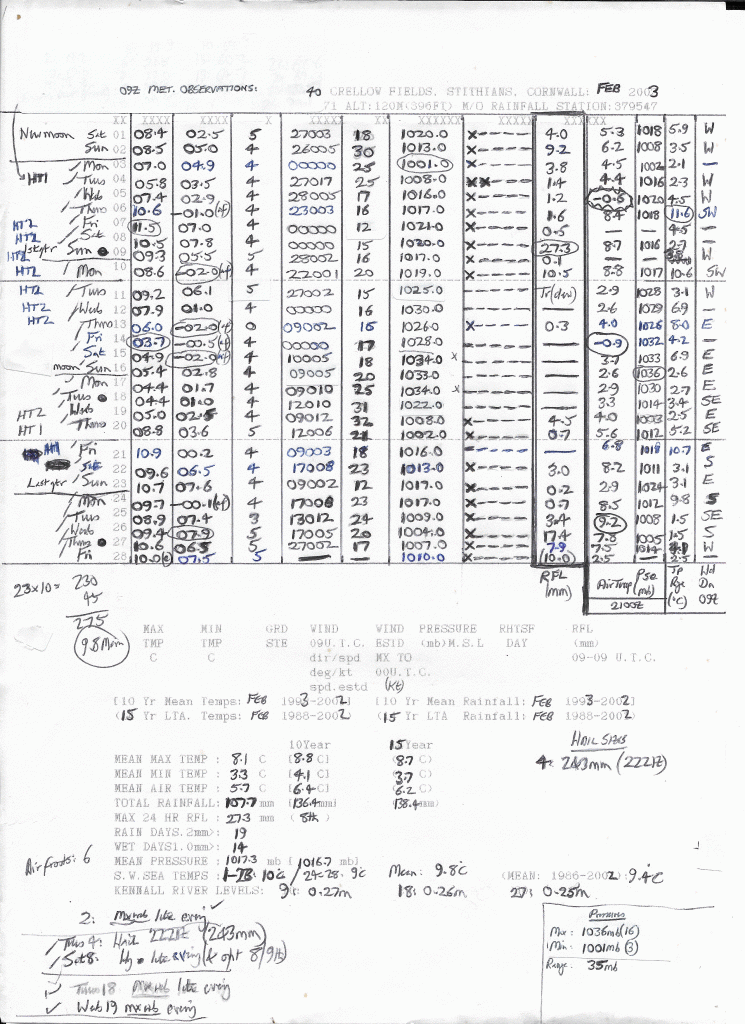 09Z MET. OBSERVATIONS: 40 CRELLOW FIELDS, STITHIANS, CORNWALL: FEB 2003
71 ALT:120M(396FT) M/O RAINFALL STATION:379547
XX XXXX XXXX X XXXXX XX XXXXXX XXXXX XXXXXX
New moon Sat 01 08.4 02.5 5 27003 18 1020.0 x----- 4.0 5.3 1018 5.9 W
Sun 02 08.5 05.0 4 26005 30 1013.0 x----- 9.2 6.2 1008 3.5 W
Mon 03 07.0 04.9 4 00000 25 1001.0 x----- 3.8 4.5 1002 2.1 —
HT1 Tues 04 05.8 03.5 4 27017 25 1008.0 xx---- 1.4 4.4 1016 2.3 W
Wed 05 07.4 02.9 4 28005 17 1016.0 x----- 1.2 -0.6 1020 4.5 W
Thurs 06 10.6 -01.0(af) 4 23003 16 1017.0 x----- 1.6 8.4 1018 11.6 SW
HT2 Fri 07 11.5 07.0 4 00000 12 1021.0 x----- 0.5 — — 4.5 —
HT2 Sat 08 10.5 07.8 4 00000 15 1020.0 x----- 27.3 8.7 1016 2.7 —
1st qtr HT2 Sun 09 09.3 05.5 5 28002 16 1017.0 x----- 0.1 — — 3.8 W
HT2 Mon 10 08.6 -02.0(af) 4 22001 20 1019.0 x----- 10.5 8.8 1017 10.6 SW
HT2 Tues 11 09.2 06.1 5 27002 15 1025.0 ------ Tr(dew) 2.9 1028 3.1 W
HT2 Wed 12 07.9 01.0 4 00000 16 1030.0 ------ — 2.6 1029 6.9 —
HT2 Thurs 13 06.0 -02.0(af) 0 09002 16 1026.0 x----- 0.3 4.0 1026 8.0 E
Fri 14 03.7 -00.5(af) 4 00000 17 1028.0 ------ — -0.9 1032 4.2 —
Sat 15 04.9 -02.9(af) 4 10005 18 1034.0 x ------ — 3.7 1033 6.9 E
moon Sun 16 05.4 02.8 4 09005 20 1033.0 ------ — 2.6 1036 2.6 E
Mon 17 04.4 01.7 4 09010 25 1034.0 x ------ — 2.9 1030 2.7 E
Tues 18 04.4 01.0 4 12010 31 1022.0 ------ — 3.3 1014 3.4 SE
HT2 Wed 19 05.0 02.5 4 09012 32 1008.0 x----- 4.5 4.0 1003 2.5 E
HT1 Thurs 20 08.8 03.6 5 12006 21 1002.0 x----- 0.7 5.6 1012 5.2 SE
HT1 Fri 21 10.9 00.2 4 09003 18 1016.0 ------ — 6.8 1018 10.7 E
Sat 22 09.6 06.5 4 17008 23 1013.0 x----- 3.0 8.2 1011 3.1 S
Last qtr Sun 23 10.7 07.6 4 09002 12 1019.0 x----- 0.2 2.9 1024 3.1 E
Mon 24 09.7 -00.1(af) 4 17006 23 1017.0 x----- 0.7 8.5 1012 9.8 S
Tues 25 08.9 07.4 3 13012 24 1009.0 x----- 3.4 9.2 1008 1.5 SE
Wed 26 09.4 07.9 5 17005 20 1004.0 x----- 17.4 7.8 1005 1.5 S
Thurs 27 10.6 06.5 5 27002 17 1007.0 x----- 7.9 7.5 1014 4.1 W
Fri 28 10.0( 07.5 5 — — 1010.0 ------ (10.0) 2.5 — — —
RFL (mm) Air Temp Pse. mb) Tp Rge (°C) Wd Dn 09Z
2100Z
23x10= 230
45
275
9.8 Mean
MAX MIN GRD WIND WIND PRESSURE RHTSF RFL
TMP TMP STE 09U.T.C. ESTD (mb)M.S.L DAY (mm)
C C dir/spd MX TO 09-09 U.T.C.
deg/kt 00U.T.C.
spd.estd (kt)
[10 Yr Mean Temps: FEB 1993-2002] [10 Yr Mean Rainfall: FEB 1993-2002]
(15 Yr LTA. Temps: FEB 1988-2002) (15 Yr LTA Rainfall: FEB 1988-2002)
HAIL SIZES
10Year 15Year
4: 2≤3mm (2221Z)
MEAN MAX TEMP : 8.1 C [8.8 C] (8.7 C)
MEAN MIN TEMP : 3.3 C [4.1 C] (3.7 C)
MEAN AIR TEMP : 5.7 C [6.4 C] (6.2 C)
TOTAL RAINFALL: 107.7 mm [136.4mm] (138.4mm)
MAX 24 HR RFL : 27.3 mm (8th)
RAIN DAYS.2mm>: 19
WET DAYS1.0mm>: 14
Air frosts: 6
MEAN PRESSURE : 1017.3 mb [1016.7 mb]
S.W.SEA TEMPS : 1-23: 10°c / 24-28: 9°c Mean: 9.8°c (MEAN: 1986-2002: 9.4°C
KENNALL RIVER LEVELS: 9: 0.27m 18: 0.26m 27: 0.25m
late evening
Tues 4: HAIL 2221Z (2≤3mm)
Sat 8: late evening
Tues 18 late evening
Wed 19 evening
Pressures
Max: 1036mb(16)
Min: 1001mb(3)
Range: 35mb